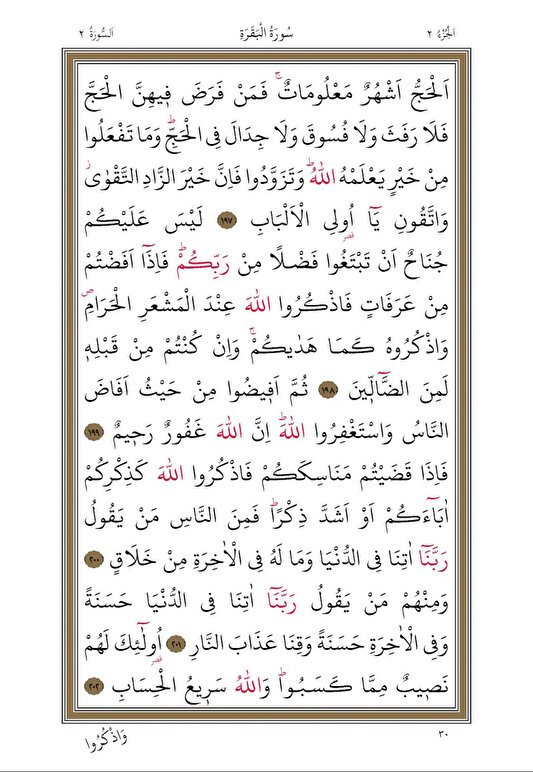 اَلْجُزْءُ ٢ سُورَةُ الْبَقَرَةِ اَلسُّورَةُ ٢
اَلْحَجُّ اَشْهُرٌ مَعْلُومَاتٌۚ فَمَنْ فَرَضَ فٖيهِنَّ الْحَجَّ
فَلَا رَفَثَ وَلَا فُسُوقَ وَلَا جِدَالَ فِى الْحَجِّؕ وَمَا تَفْعَلُوا
مِنْ خَيْرٍ يَعْلَمْهُ اللّٰهُؕ وَتَزَوَّدُوا فَاِنَّ خَيْرَ الزَّادِ التَّقْوٰىؗ
وَاتَّقُونِ يَٓا اُولِى الْاَلْبَابِ ﴿١٩٧﴾ لَيْسَ عَلَيْكُمْ
جُنَاحٌ اَنْ تَبْتَغُوا فَضْلًا مِنْ رَبِّكُمْؕ فَاِذَٓا اَفَضْتُمْ
مِنْ عَرَفَاتٍ فَاذْكُرُوا اللّٰهَ عِنْدَ الْمَشْعَرِ الْحَرَامِࣕ
وَاذْكُرُوهُ كَمَا هَدٰيكُمْۚ وَاِنْ كُنْتُمْ مِنْ قَبْلِهٖ
لَمِنَ الضَّٓالّٖينَ ﴿١٩٨﴾ ثُمَّ اَفٖيضُوا مِنْ حَيْثُ اَفَاضَ
النَّاسُ وَاسْتَغْفِرُوا اللّٰهَؕ اِنَّ اللّٰهَ غَفُورٌ رَحٖيمٌ ﴿١٩٩﴾
فَاِذَا قَضَيْتُمْ مَنَاسِكَكُمْ فَاذْكُرُوا اللّٰهَ كَذِكْرِكُمْ
اٰبَٓاءَكُمْ اَوْ اَشَدَّ ذِكْرًاؕ فَمِنَ النَّاسِ مَنْ يَقُولُ
رَبَّنَٓا اٰتِنَا فِى الدُّنْيَا وَمَا لَهُ فِى الْاٰخِرَةِ مِنْ خَلَاقٍ ﴿٢٠٠﴾
وَمِنْهُمْ مَنْ يَقُولُ رَبَّنَٓا اٰتِنَا فِى الدُّنْيَا حَسَنَةً
وَفِى الْاٰخِرَةِ حَسَنَةً وَقِنَا عَذَابَ النَّارِ ﴿٢٠١﴾ اُولٰٓئِكَ لَهُمْ
نَصٖيبٌ مِمَّا كَسَبُواؕ وَاللّٰهُ سَرٖيعُ الْحِسَابِ ﴿٢٠٢﴾
٣٠ وَاذْكُرُوا